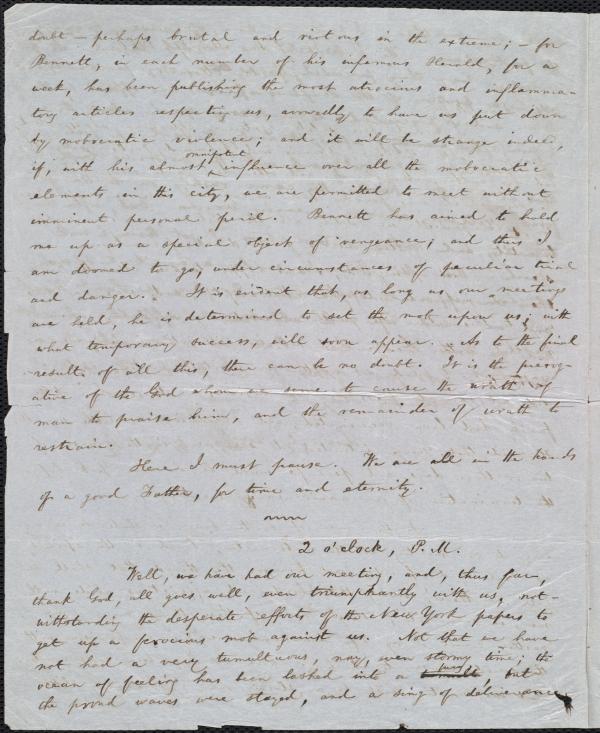 doubt — perhaps brutal and riotous in the extreme; — for
Bennett, in each number of his infamous Herald, for a
week, has been publishing the most atrocious and inflamma-
tory articles respecting us, avowedly to have us put down
by mobocratic violence; and it will be strange indeed,
if, with his almost omnipotent influence over all the mobocratic
elements in this city, we are permitted to meet without
imminent personal peril. Bennett has aimed to hold
me up as a special object of vengeance; and thus I
am doomed to go, under circumstances of peculiar trial
and danger. It is evident that, as long as our meetings
are held, he is determined to set the mob upon us; with
what temporary success, will soon appear. As to the final
result of all this, there can be no doubt. It is the prerog-
ative of the God whom we serve to cause the wrath of
man to praise him, and the remainder of wrath to
restrain.
Here I must pause. We are all in the hands
of a good Father, for time and eternity.
2 o'clock, P.M.
Well, we have had our meeting, and, thus far,
thank God, all goes well, even triumphantly with us, not-
withstanding the desperate efforts of the New York papers to
get up a ferocious mob against us. Not that we have
not had a very tumultuous, nay, even stormy time; the
ocean of feeling has been lashed into a fury, but
the proud waves were stayed, and a song of deliverance